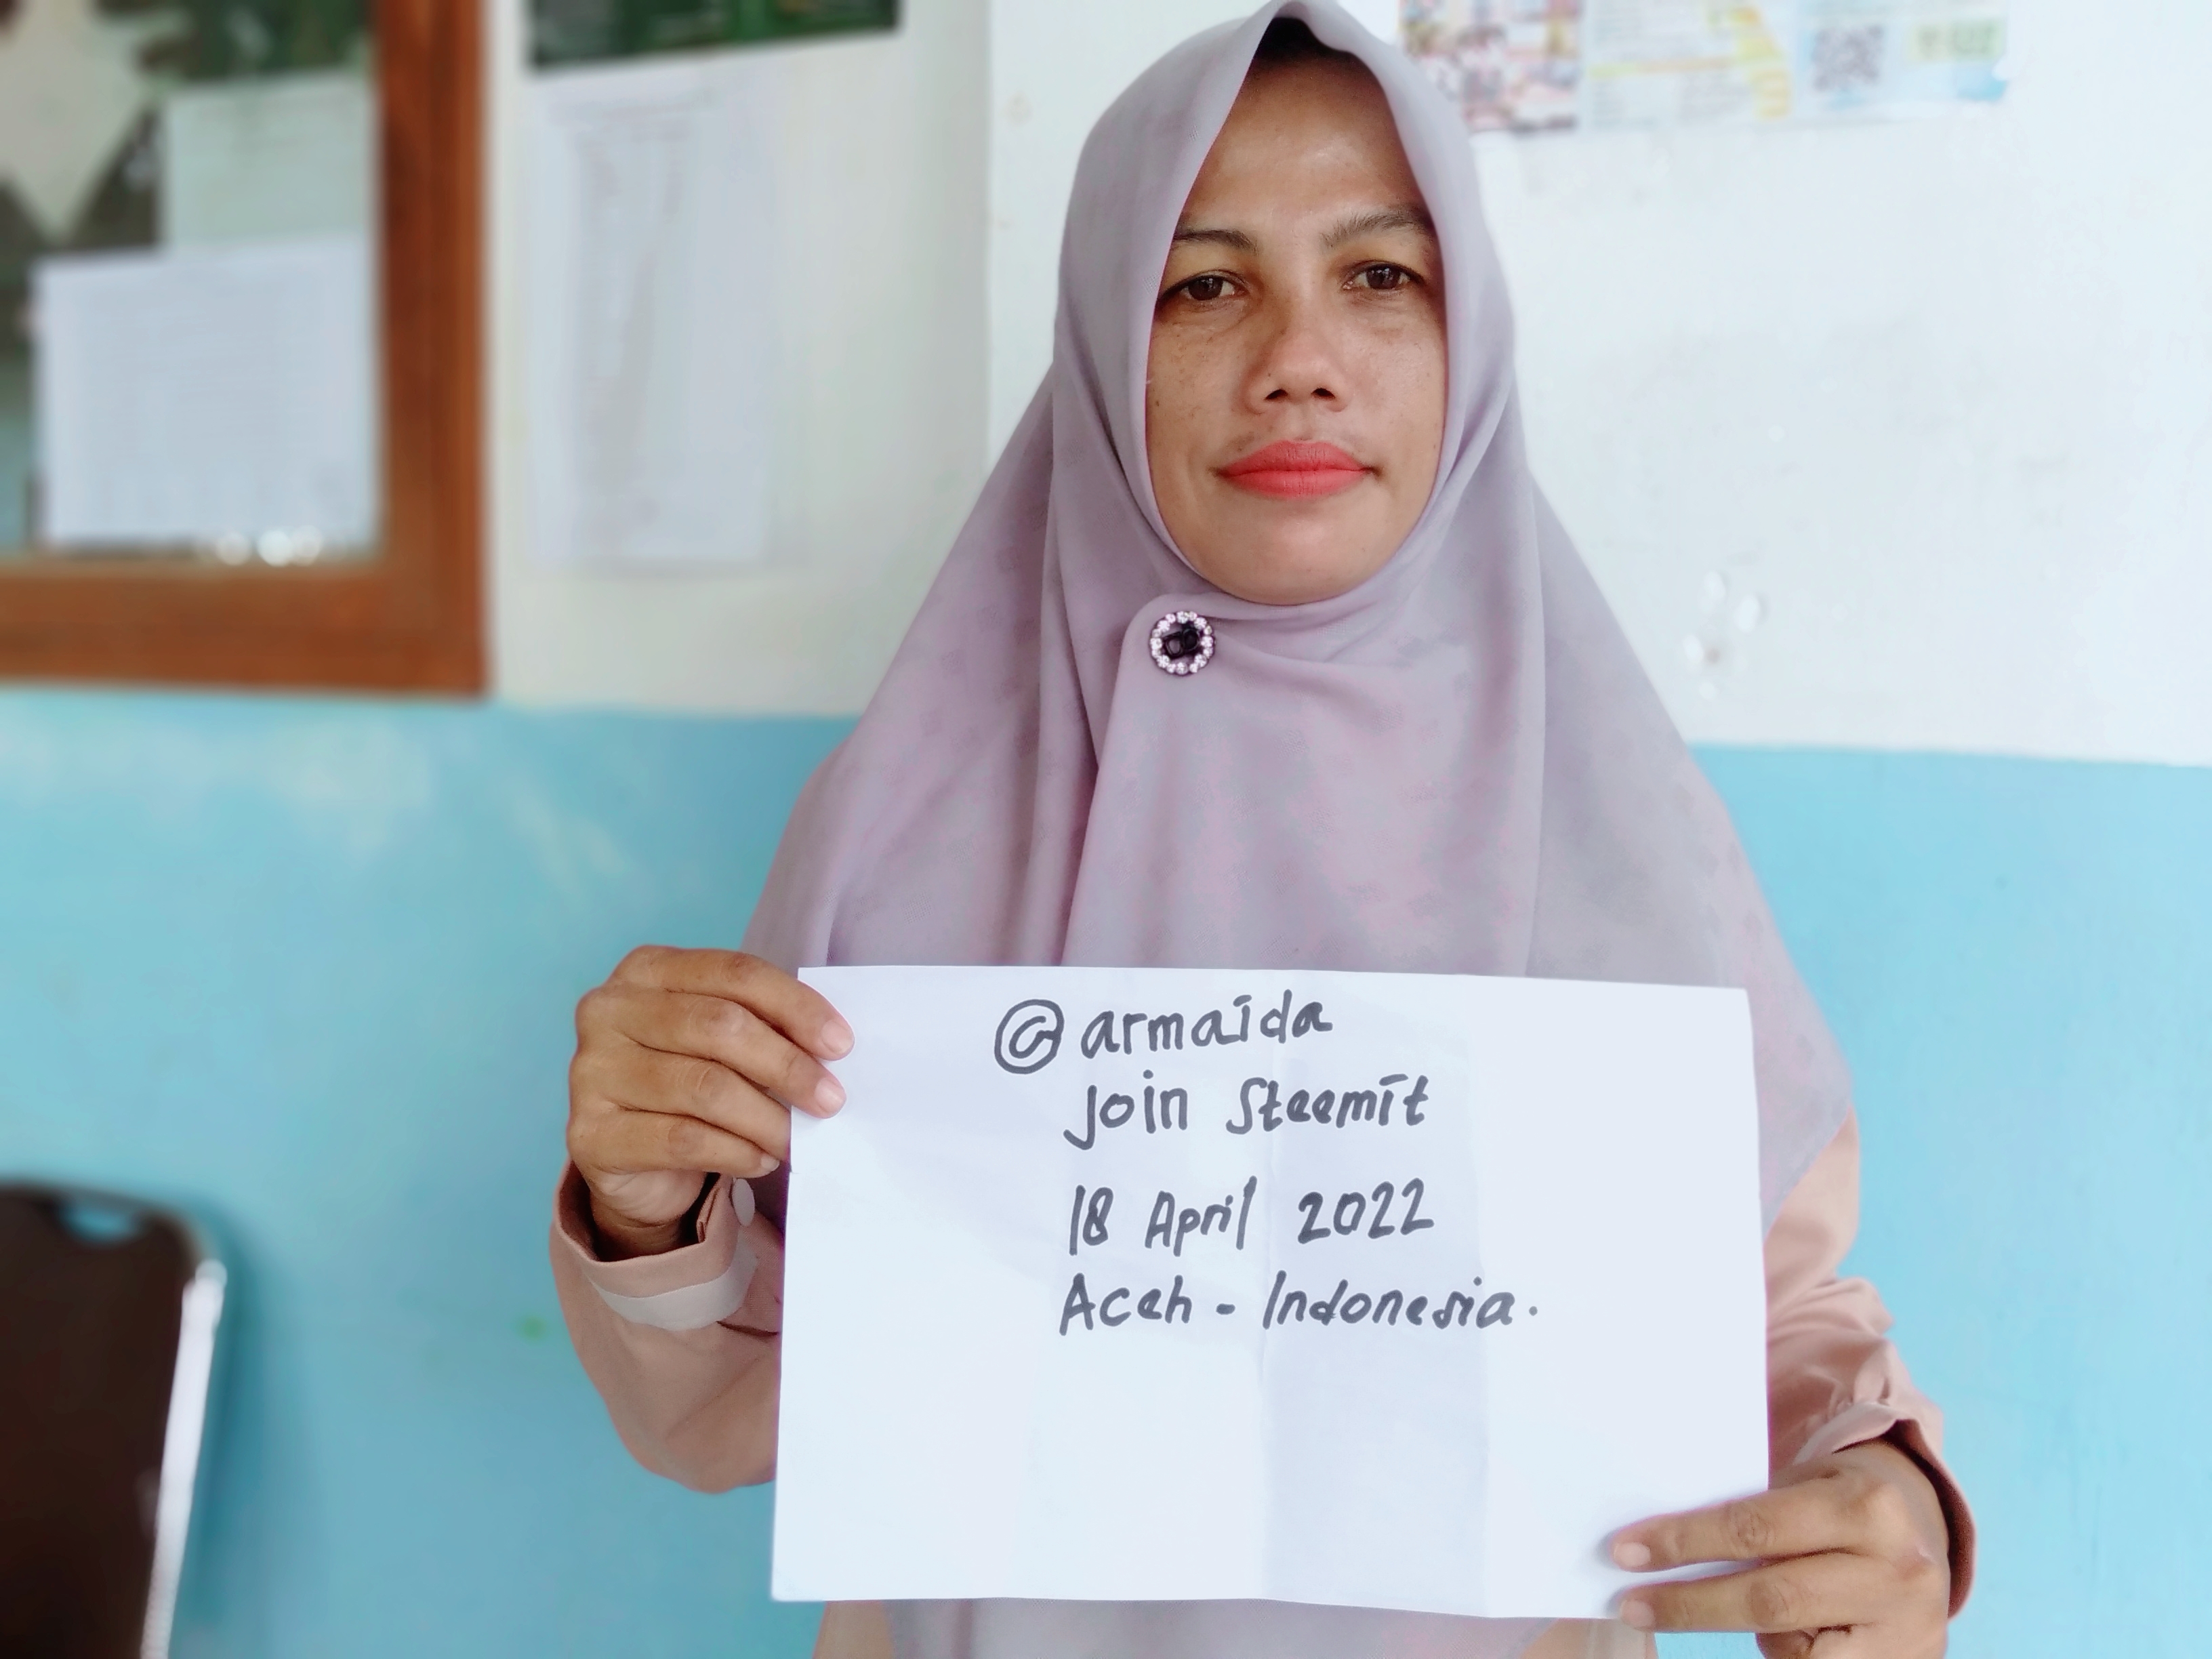 @armaida
Join Steemit
18 April 2022
Aceh - Indonesia.